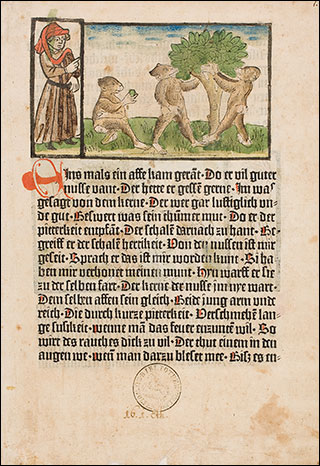 Eins mals ein affe kam gerāt• Do er vil guter
nusse vant• Der hette er gessē gerne• Im was
gesagt von dem kerne• Der wer gar lustiglich vn-
de gut• Beswert was sein thūmer mut• Do er der
pitterkeit enpfāt• Der schalē darnach zu hant• Be-
greiff er der schalē hertikeit• Von dē nussen ist mir
geseit• Sprach er das ist mir wordē kunt• Si ha-
ben mir verhonet meinen munt• Hyn warff er sie
zu der selben fart• Der kerne der nusse im nye wart•
Dem selben affen sein gleich• Beide jung arm vnde
reich• Die durch kurze pitterkeit• Verschmehē lan-
ge susikeit• wenne mā das feuer enzunen wil• So
wirt des rauches dick zu vil• Der thut einem in den
augen we• wenn man darzu bleset mee• Bisz es en-